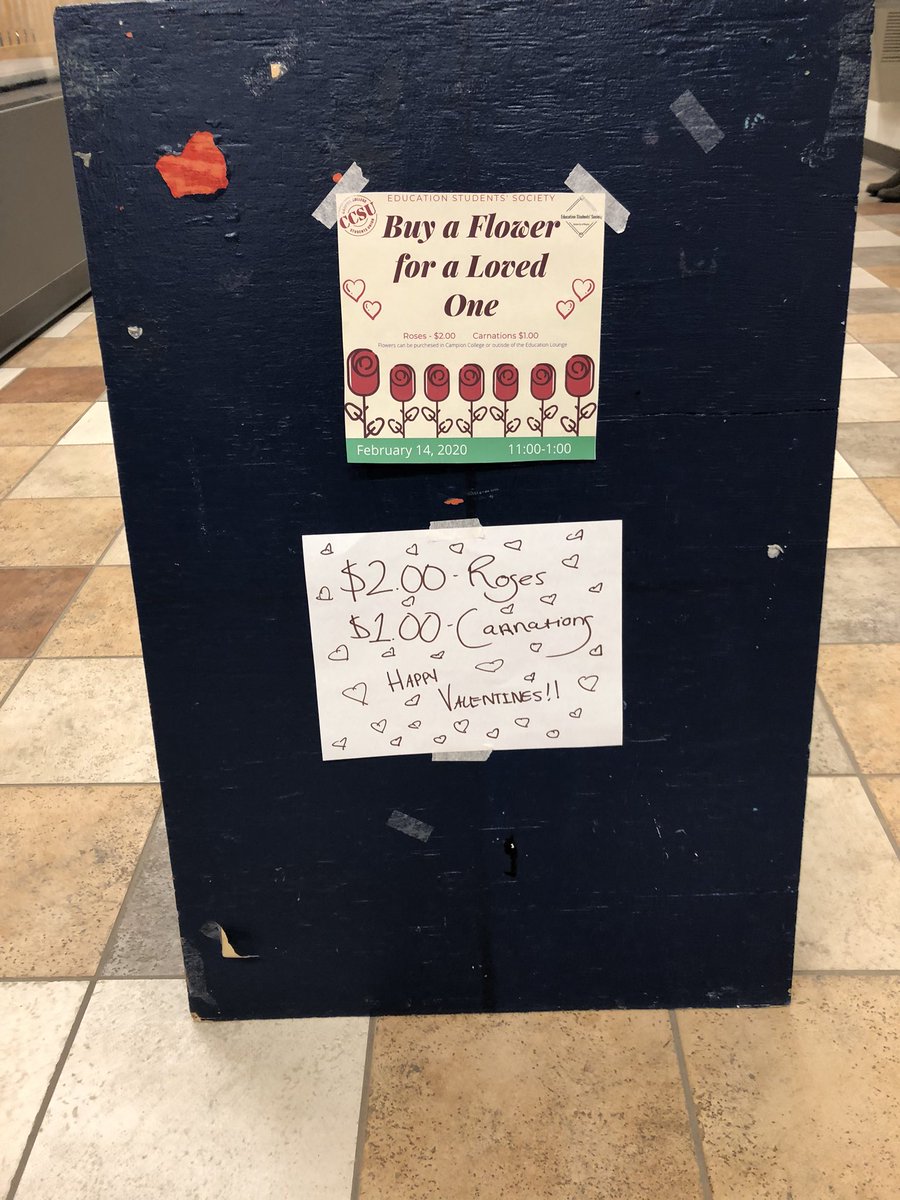 EDUCATION STUDENTS' SOCIETY
CCSU
Education Students' Society
Buy a Flower
for a Loved
One
Roses - $2.00 Carnations $1.00
Flowers can be purchased in Campion College or outside of the Education Lounge
February 14, 2020 11:00-1:00
$2.00 - Roses
$1.00 - Carnations
Happy
Valentines!!